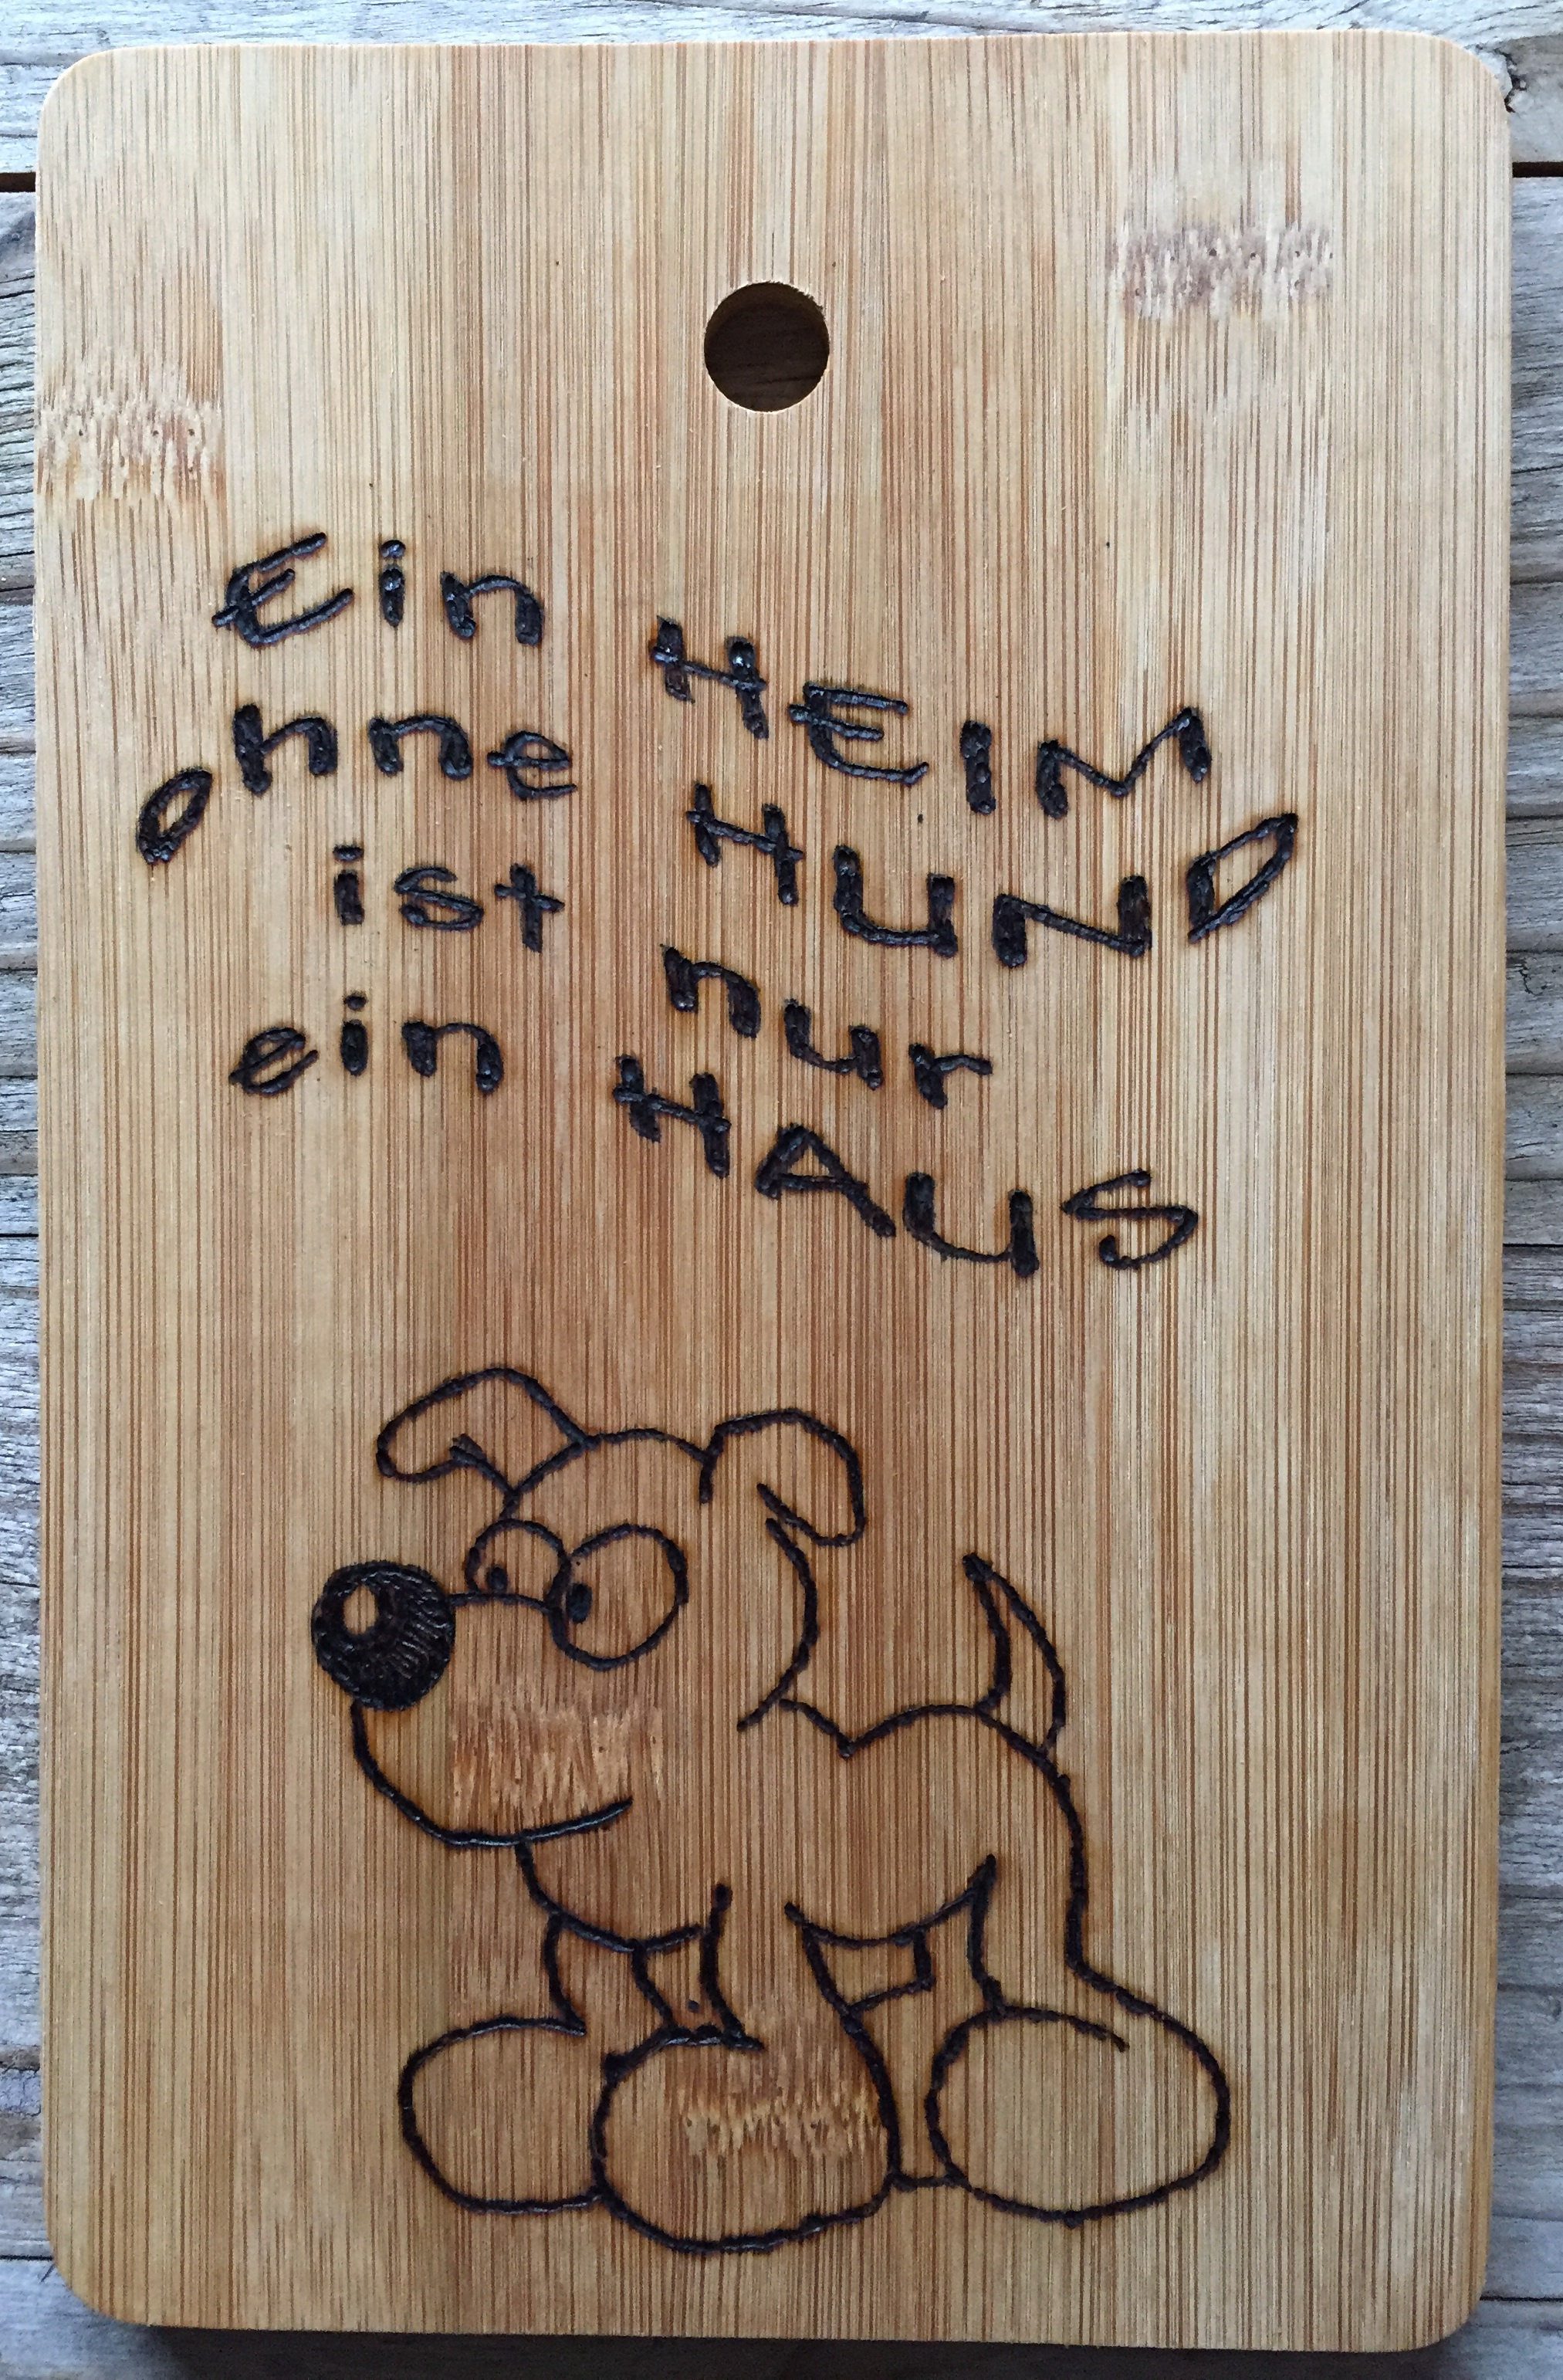 Ein HEIM
ohne HUND
ist nur
ein HAUS